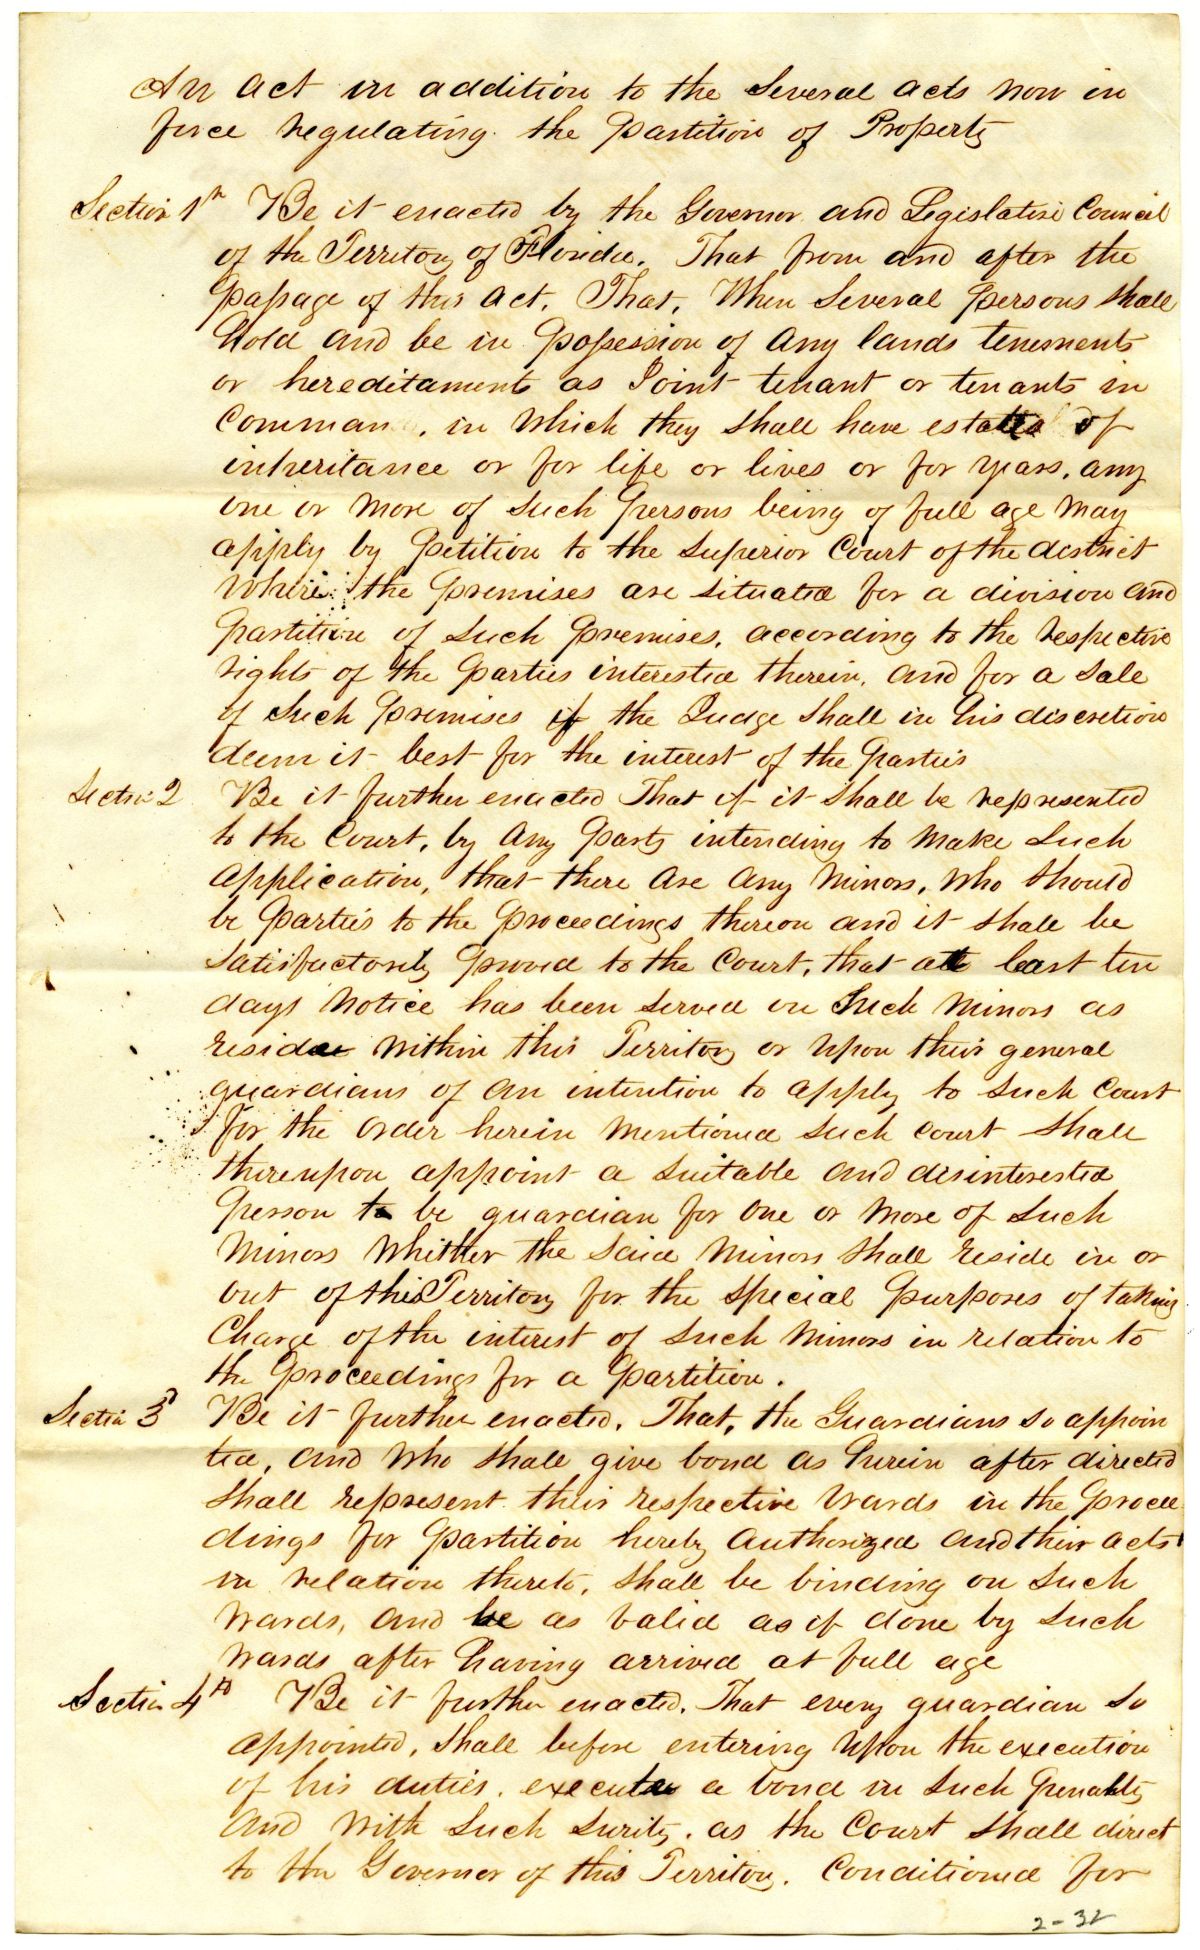 An act in addition to the Several acts now in
force regulating the Partition of Property
Section 1st Be it enacted by the Governor and Legislative Council
of the Territory of Florida. That from and after the
Passage of this act. That, When Several Persons shall
hold and be in Possession of any lands tenements
or hereditaments as Joint tenant or tenants in
Comman, in which they shall have estates of
inheritance or for life or lives or for years, any
one or more of such Persons being of full age may
apply by Petition to the Superior Court of the district
Where the Premises are situated for a division and
Partition of such Premises, according to the respective
rights of the Parties interested therein, and for a sale
of such Premises if the Judge shall in his discretion
deem it best for the interest of the Parties
Section 2 Be it further enacted That if it shall be represented
to the Court, by any Party intending to make such
application, that there are any Minors, who should
be Parties to the Proceedings thereon and it shall be
Satisfactorily Proved to the Court, that at least ten
days Notice has been served on such Minors as
reside within this Territory or upon their general
guardians of an intention to apply to such Court
for the order herein mentioned such court shall
thereupon appoint a suitable and disinterested
Person to be guardian for one or more of such
Minors whither the said Minors shall reside in or
out of this Territory for the special Purposes of taking
Charge of the interest of such Minors in relation to
the Proceedings for a Partition.
Section 3d Be it further enacted. That, the Guardians so appoin
ted, and who shall give bond as herein after directed
shall represent their respective Wards in the Procee
dings for Partition hereby authorized and their acts
in relation thereto, shall be binding on such
Wards, and be as valid as if done by such
Wards after having arrived at full age
Section 4th Be it further enacted. That every guardian so
appointed, shall before entering upon the execution
of his duties, execute a bond in such Penalty
and with such surity. as the Court shall direct
to the Governor of this Territory. Conditioned for
2-32